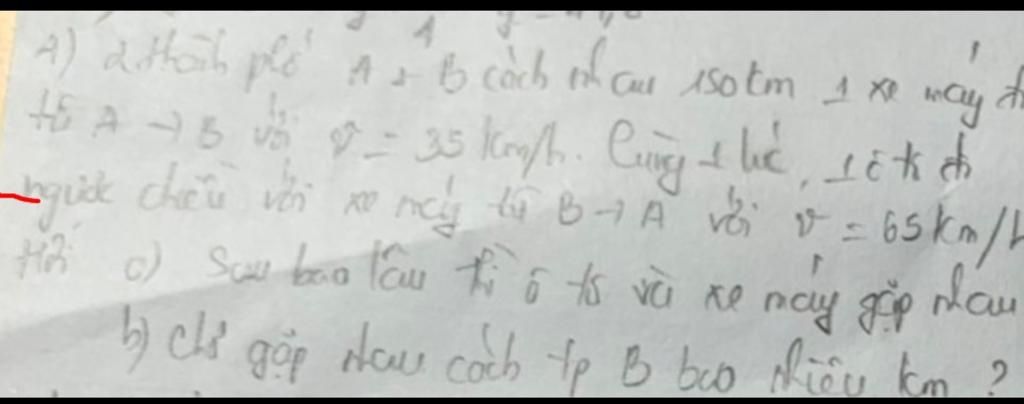 A) 2 thành phố A + B cách nhau 150km 1 xe máy đi
từ A → B với v = 35 km/h. Cùng 1 lúc, 1 ô tô đi
ngược chiều với xe máy từ B → A với v = 65km/h
Hỏi a) Sau bao lâu thì ô tô và xe máy gặp nhau
b) Chỗ gặp nhau cách tp B bao nhiêu km ?